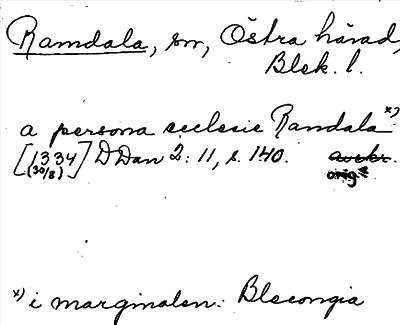 Ramdala, sn, Östra härad,
Blek. l.
a persona ecclesie Ramdala x)
[1334] DDan 2: 11, s. 140. avskr.
(30/8) orig.
x) i marginalen: Blecongia